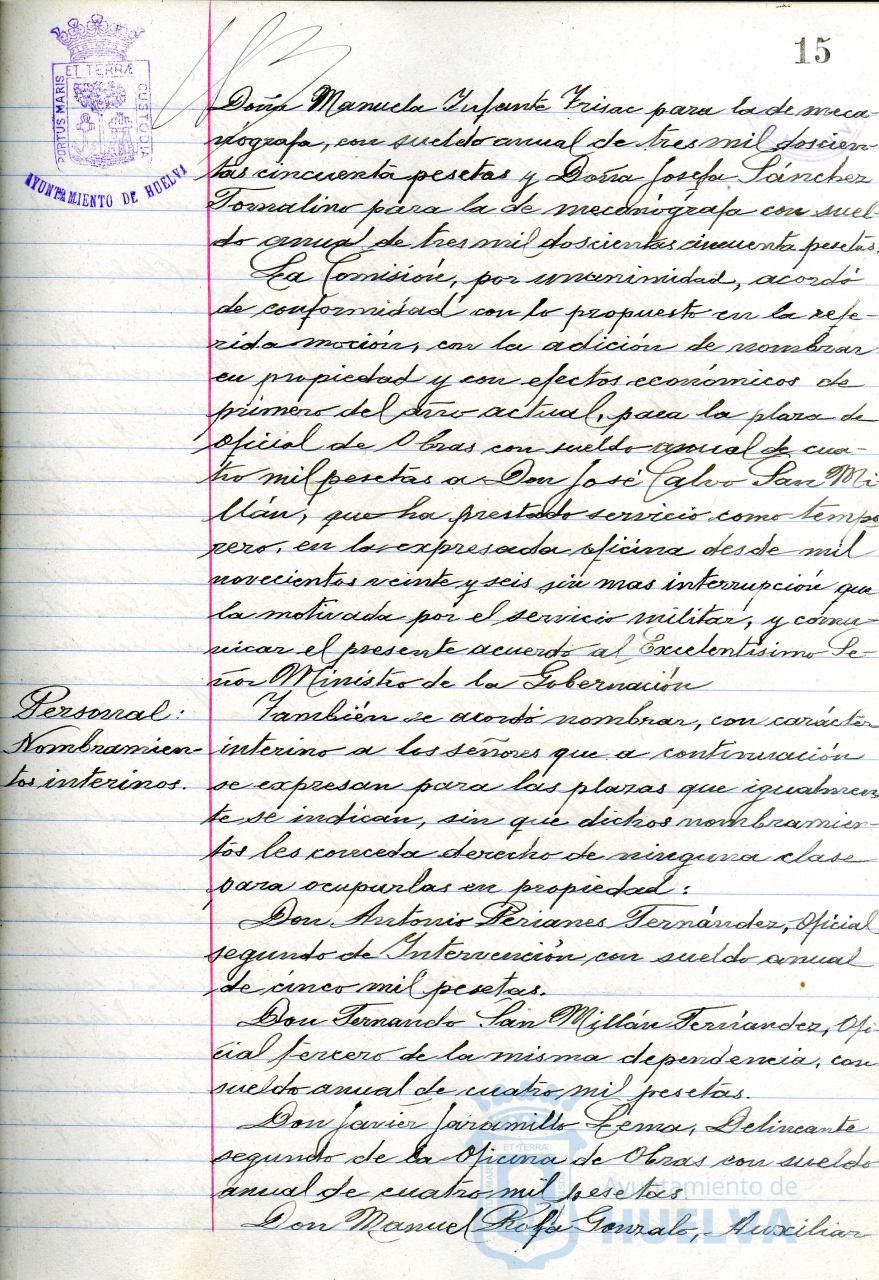 15
PORTUS MARIS
ET TERRÆ
CUSTODIA
AYUNTAMIENTO DE HUELVA
Doña Manuela Infante Frisac para la de meca-
nógrafa, con sueldo anual de tres mil doscien-
tas cincuenta pesetas y Doña Josefa Sánchez
Tornalino para la de mecanógrafa con suel-
do anual de tres mil doscientas cincuenta pesetas.
La Comisión, por unanimidad, acordó
de conformidad con lo propuesto en la refe-
rida moción, con la adición de nombrar
en propiedad y con efectos económicos de
primero del año actual, para la plaza de
Oficial de Obras con sueldo anual de cua-
tro mil pesetas a Don José Calvo San Mi-
llán, que ha prestado servicio como tempo
rero, en la expresada oficina desde mil
novecientos veinte y seis sin mas interrupción que
la motivada por el servicio militar, y comu-
nicar el presente acuerdo al Excelentísimo Se-
ñor Ministro de la Gobernación
Personal:
Nombramien-
tos interinos.
También se acordó nombrar, con carácter
interino a los señores que a continuación
se expresan para las plazas que igualmen
te se indican, sin que dichos nombramien-
tos les conceda derecho de ninguna clase
para ocuparlas en propiedad:
Don Antonio Perianes Fernández, Oficial
segundo de Intervención con sueldo anual
de cinco mil pesetas.
Don Fernando San Millán Fernández, Ofi-
cial tercero de la misma dependencia, con
sueldo anual de cuatro mil pesetas.
Don Javier Jaramillo Lema, Delineante
segundo de la Oficina de Obras con sueldo
anual de cuatro mil pesetas
Don Manuel Rofa Gonzalo, Auxiliar
Ayuntamiento de
HUELVA